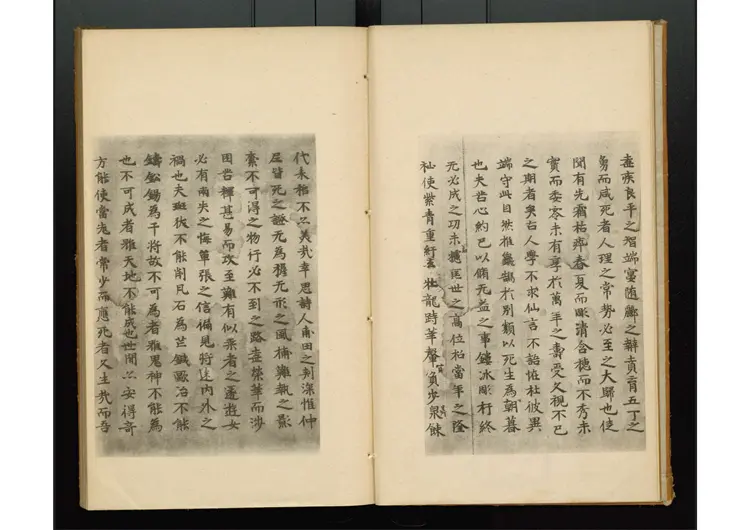 棄疾良平之智端嬰随酈之辯賁育五丁之
勇而咸死者人理之常勢必至之大歸也徒
聞有先霜枯瘁春夏而彫清含穗而不秀未
實而委零未有享於萬年之壽受久視不已
之期者矣古人學不求仙言不語恠杜彼異
端守此自然推龜鶴於別類以死生為朝暮
也夫苦心約己以脩无益之事鏤冰彫朽終
无必成之功未攄匡世之高位招當年之隆
祉使紫青重紆玄牡龍跱華轂負步鼎餗
代耒耜不亦美哉幸思詩人甫田之刺深惟仲
尼皆死之證无為握无形之風捕難執之影
索不可得之物行必不到之路棄榮華而涉
困苦釋甚易而攻至難有似桒者之逐遊女
必有兩失之悔單張之信偏見將速內外之
禍也夫班狄不能削凡石為芒鍼歐冶不能
鑄鈆錫為干將故不可為者雖鬼神不能為
也不可成者雖天地不能成也世間亦安得奇
方能使當老者常少而應死者又生哉而吾